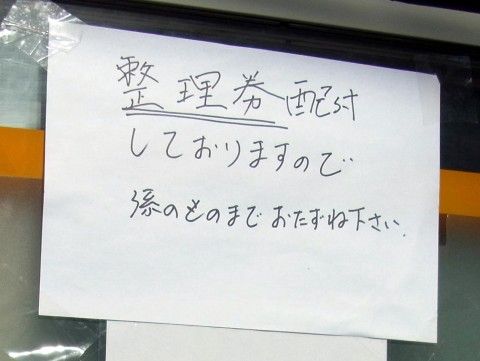 整理券配付
しておりますので‥
係のものまでおたずね下さい.